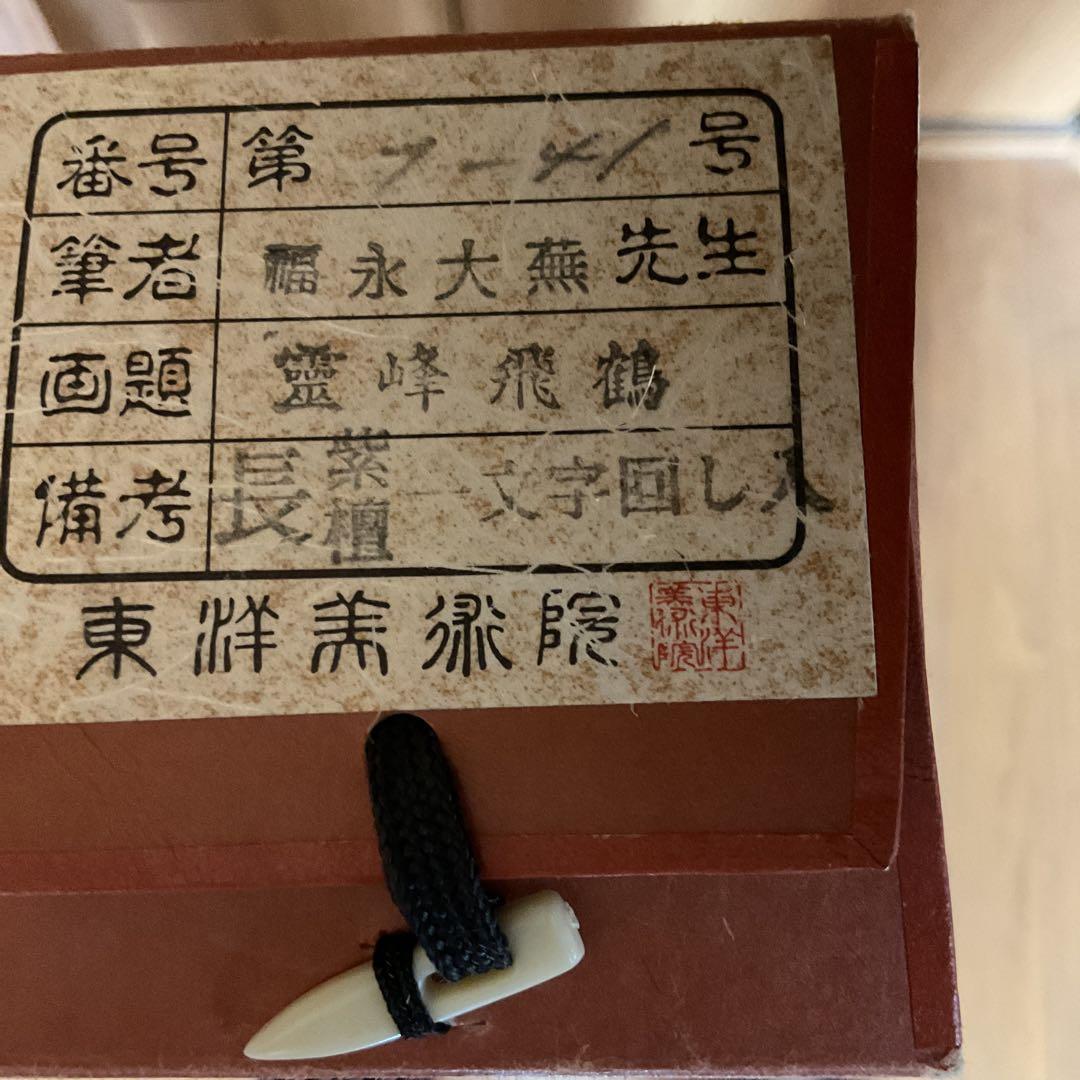 番号 第 7-41 号
筆者 福永大蕪先生
画題 靈峰飛鶴
備考 長 紫檀 一文字回し入
東洋美術院
東洋美術院